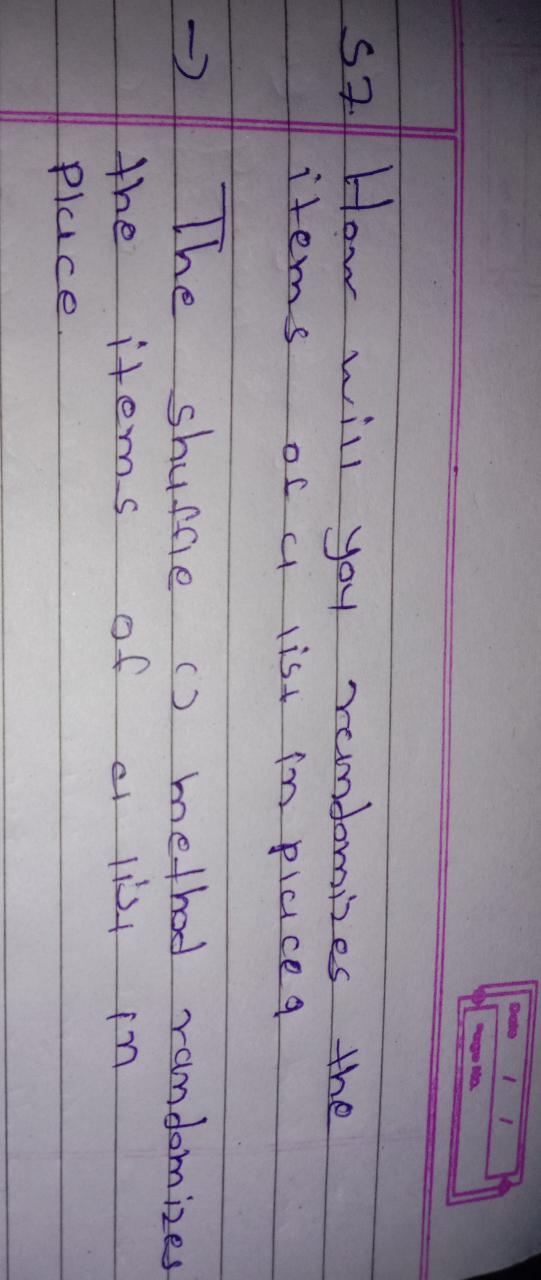 Date / /
Page No.
57. How will you randomizes the
items of a list in place?
→ The shuffle () method randomizes
the items of a list in
place.